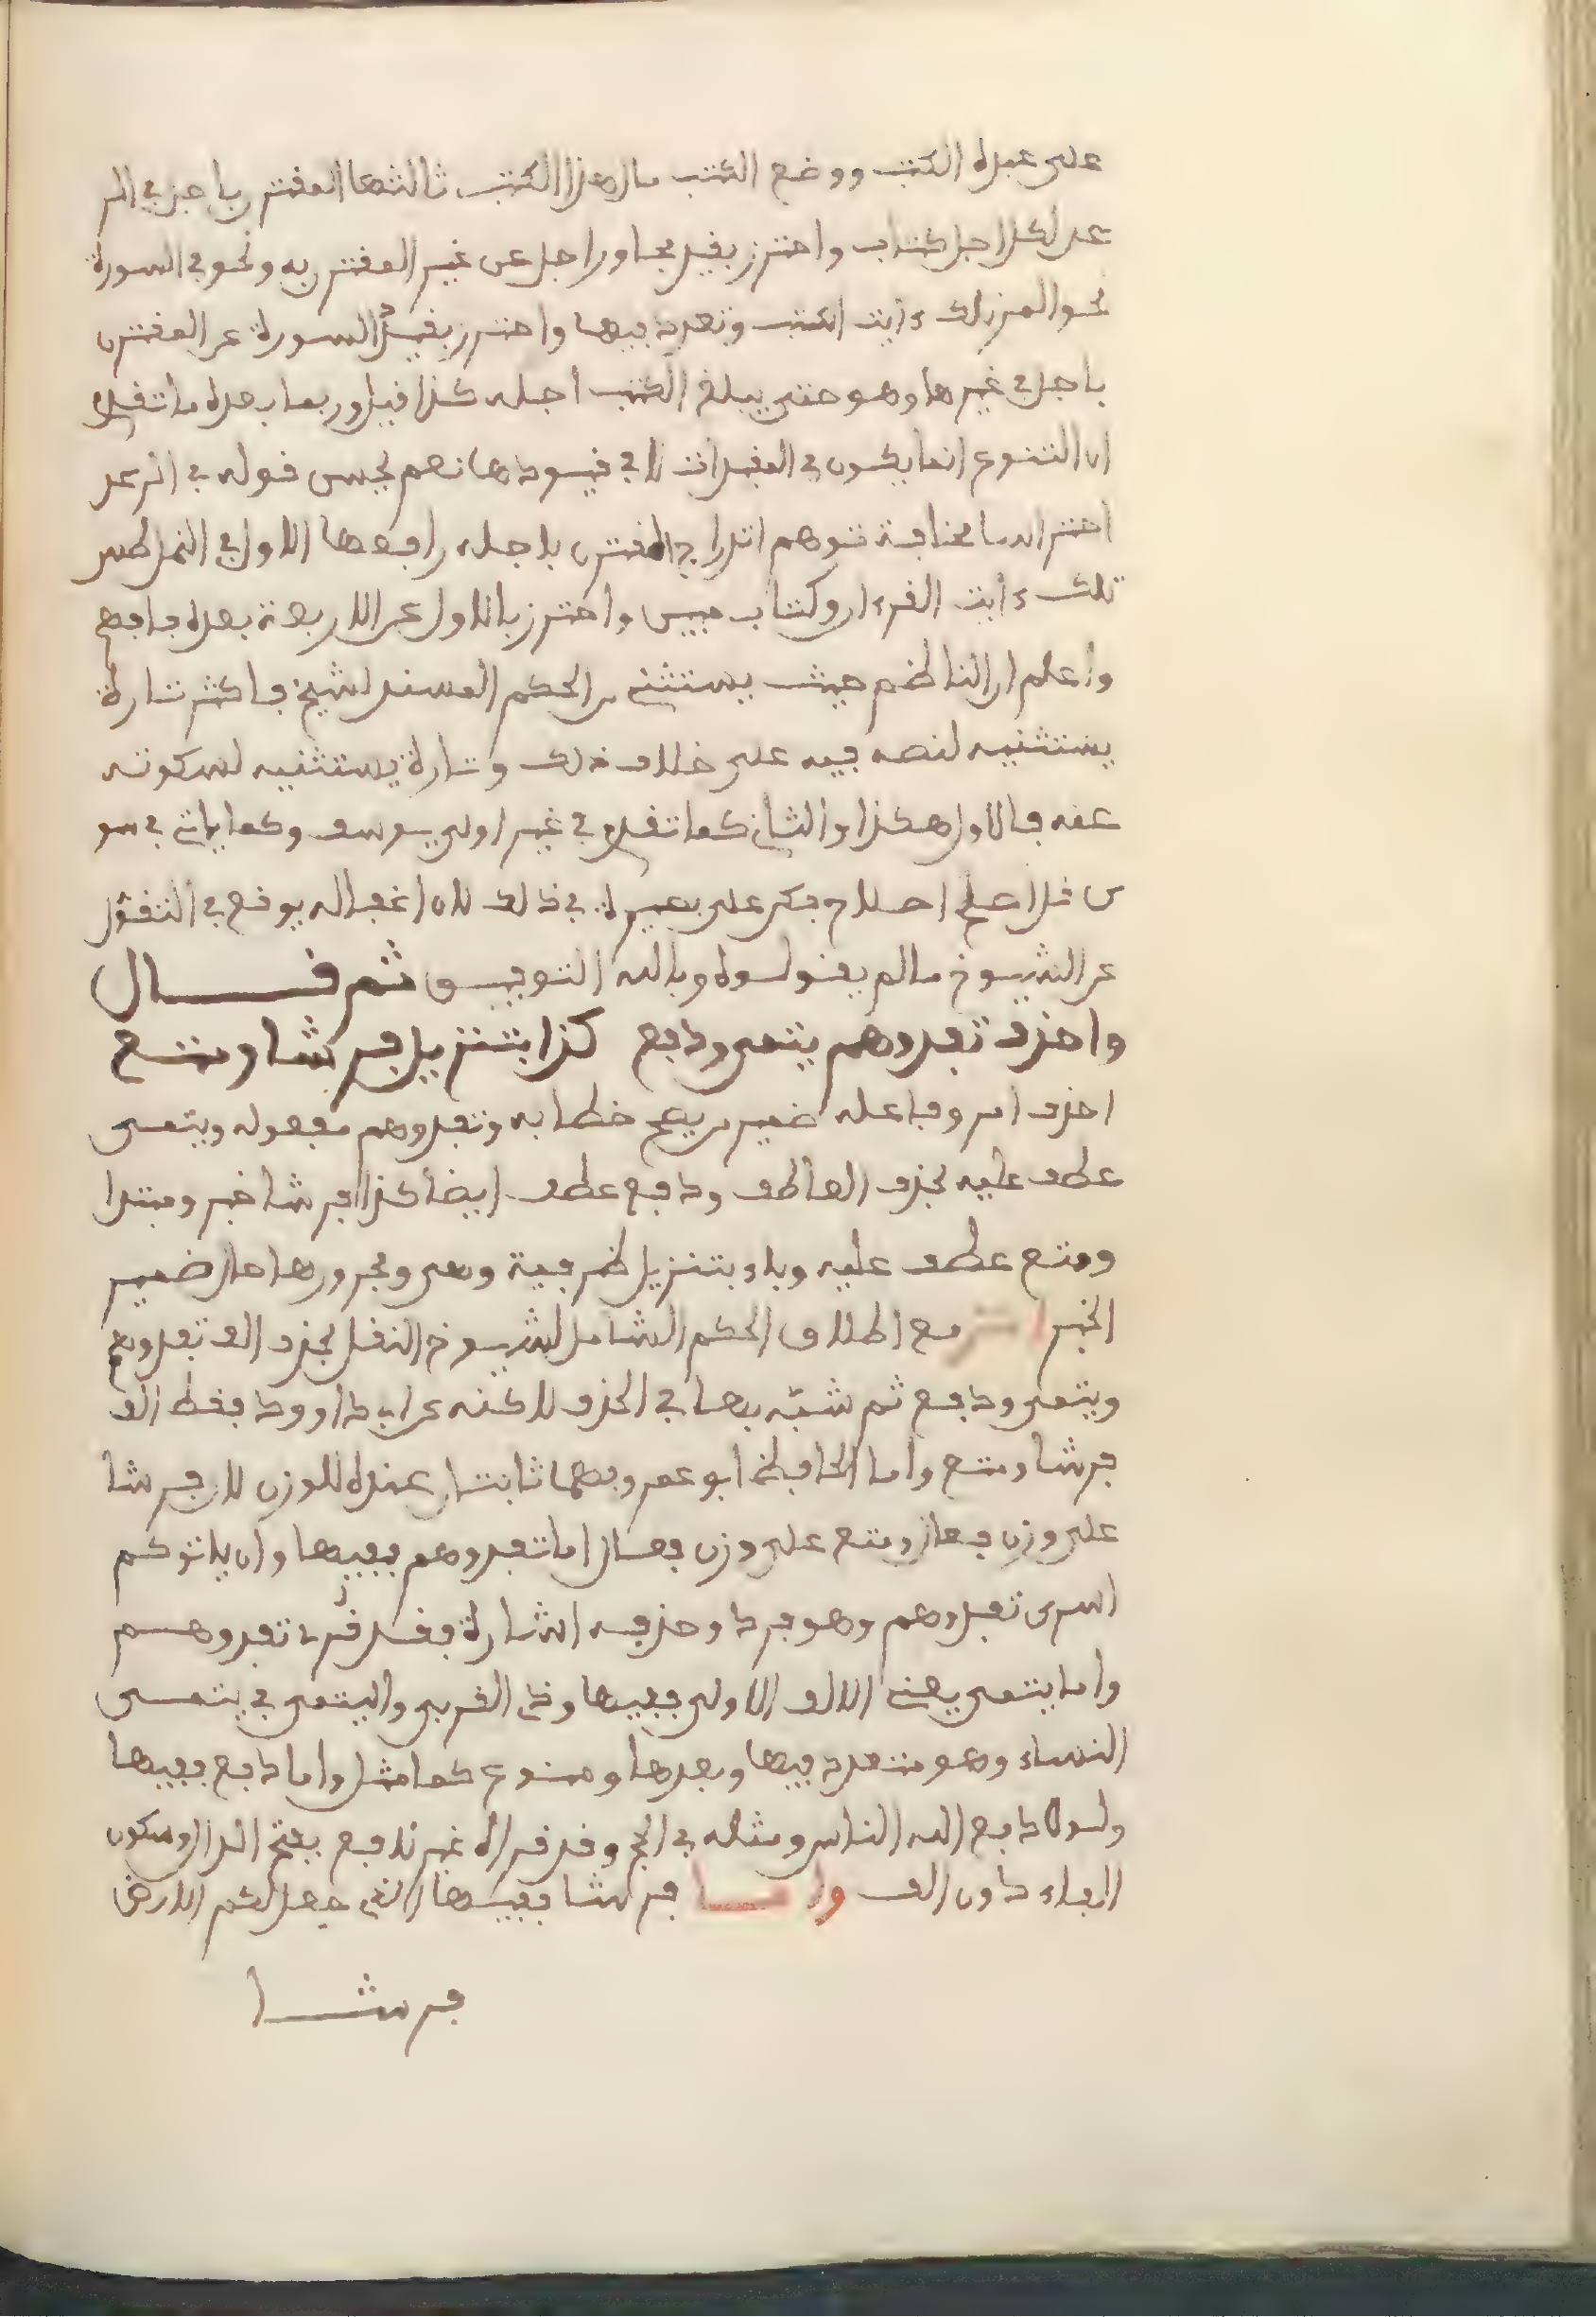 على عبده الكتب ووضع الكتب مال هذا الكتب ثالثها المقترن باجل في الر
عد لكل اجل كتاب واحترز بقيد مجاور اجل عن غير المقترن به ونحو في السورة
نحو المر تلك ءايت الكتب وتعدد فيها واحترز بقيد السورة عن المقترن
باجل في غيرها وهو حتى يبلغ الكتب اجله كذا قيل وربما يعده ما تقدم
ان التنوع انما يكون في المقيدات لا في قيودها نعم يحسن قوله في الرعد
احترازا مخافة توهم اندراج المقترن باجله رابعها الاول في النمل طس
تلك ءايت القرءان وكتاب مبين واحترز بالاول عن الاربعة بعده فافهم
واعلم ان الناظم حيث يستثنى من الحكم المسند لشيخ فاكثر تارة
يستثنيه لنصه فيه على خلاف ذلك وتارة يستثنيه لسكوته
عنه فالاول هكذا والثاني كما تقدم في غير اولى يوسف وكما ياتي في سو
ى قل اصلح احلام فكن على بصيرة في ذلك لان اغفاله يوقع في التقول
عن الشيوخ ما لم يقولوه وبالله التوفيق ثم قال
واحذف تفدوهم يتمى ودفع كذا بتنزيل فرشا ومتع
احذف امر وفاعله ضمير من يصح خطابه وتفدوهم مفعوله ويتمى
عطف عليه بحذف العاطف ودفع عطف ايضا كذا فرشا خبر ومبتدا
ومتع عطف عليه وباء بتنزيل ظرفية وهي ومجرورها حال ضمير
الخبر مع اطلاق الحكم الشامل لشيوخ النقل بحذف الف تفدوهم
ويتمى ودفع ثم شبه بها في الحذف لاكنه عن ابى داوود فقط الف
فرشا ومتع واما الحافظ ابو عمرو فهما ثابتان عنده للوزن لان فرشا
على وزن فعال ومتع على وزن فعال اما تفدوهم ففيها وان ياتوكم
اسرى تفدوهم وهو فرد وحذفه اشارة فقد قرئ تفدوهم
واما يتمى يعنى الالف الاولى ففيها وذى القربى واليتمى في يتمى
النساء وهو متعدد فيها وبعدها ومنوع كما مثل واما دفع ففيها
ولولا دفع الله الناس ومثله في الحج وقد قراه غير نافع بفتح الدال وسكون
الفاء دون الف واما فرشا ففيها الذى جعل لكم الارض
فرشا